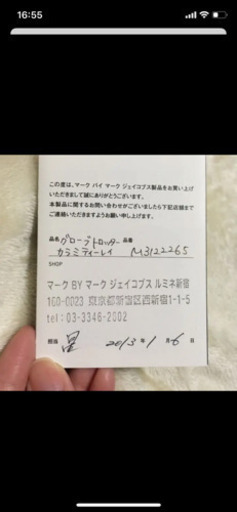 16:55
この度は、マーク バイ マーク ジェイコブス製品をお買い上げ
いただきまして誠にありがとうございます。
本製品に関するお問い合わせがございましたら下記店舗まで
ご連絡いただきますようお願い申し上げます。
品名 グローブトロッター 品番
カラミティーレイ M3122265
SHOP
マーク BY マーク ジェイコブス ルミネ新宿
160-0023 東京都新宿区西新宿1-1-5
tel:03-3346-2002
担当 星 2013年1月6日